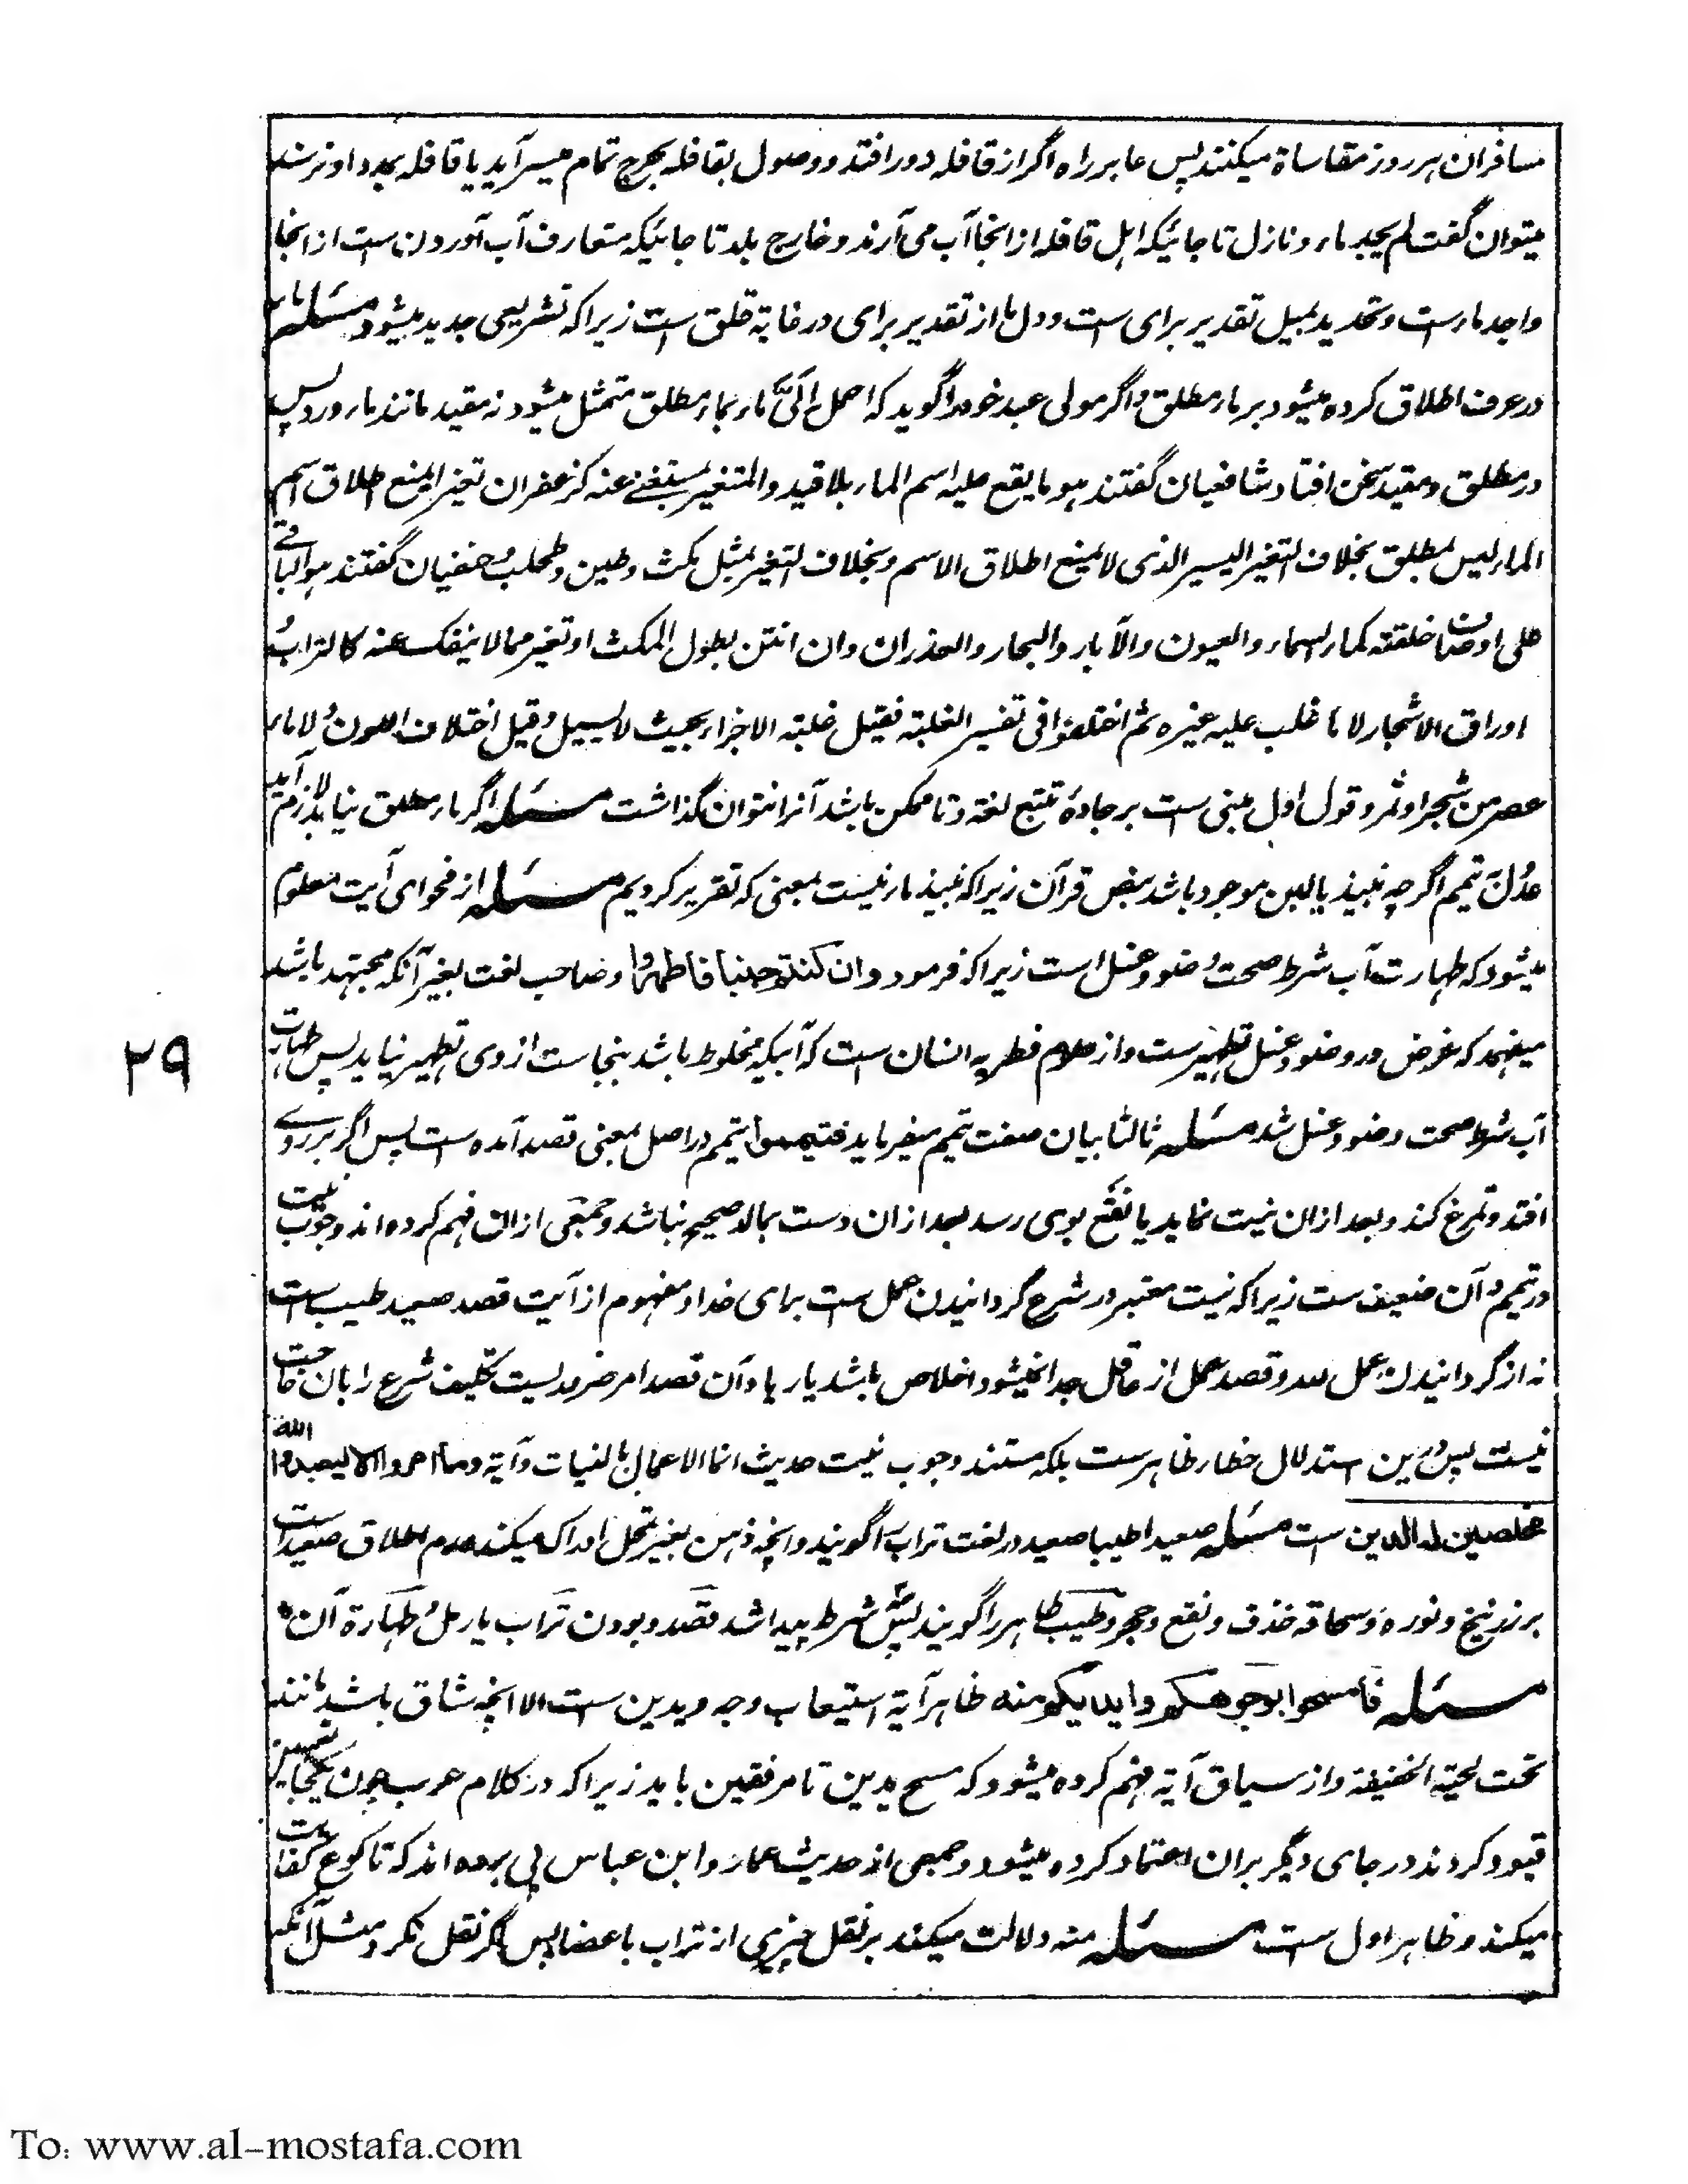 مسافران هر روز مقاساة میکنند پس عابر راه اگر از قافله دور افتد و وصول بقافله بحرج تمام میسر آید یا قافله بمدد او نرسد
میتوان گفت لم یجد ماء و نازل تا جائیکه اهل قافله از انجا آب می آرند و خارج بلد تا جائیکه متعارف آب آوردن ست از انجا
واجد ماء ست و تحدید بمیل تقدیر برای ست و دل ما از تقدیر برای در غایة قلق ست زیرا که تشریعی جدید میشود مسئله ماء
در عرف اطلاق کرده میشود بر ماء مطلق و اگر مولی عبد خود را گوید که احمل الیّ ماء بماء مطلق متمثل میشود نه مقید مانند ماء ورد پس
در مطلق و مقید سخن افتاد شافعیان گفتند هو ما یقع علیه اسم الماء بلا قید و المتغیر بمستغنی عنه کزعفران تغیرا یمنع اطلاق اسم
الماء لیس بمطلق بخلاف التغیر الیسیر الذی لا یمنع اطلاق الاسم و بخلاف التغیر بمثل مکث و طین و طحلب و حنفیان گفتند هو الباقی
علی اوصاف خلقته کماء السماء و العیون و الآبار و البحار و الغدران و ان انتن بطول المکث او تغیر مما لا ینفک عنه کالتراب و
اوراق الاشجار لا ما غلب علیه غیره ثم اختلفوا فی تفسیر الغلبة فقیل غلبة الاجزاء بحیث لا یسیل و قیل اختلاف اللون و لا ماء
عصر من شجر او ثمر و قول اول مبنی ست بر جادۀ تتبع لغة و تا ممکن باشد آنرا نتوان گذاشت مسئله اگر ماء مطلق نیابد لازم آید
عدل تیمم اگرچه نبیذ یا لبن موجود باشد بنص قرآن زیرا که نبیذ ماء نیست بمعنی که تقریر کردیم مسئله از فحوای آیت معلوم
میشود که طهارت آب شرط صحت وضو و غسل است زیرا که فرمود و ان کنتم جنبا فاطهروا و صاحب لغت بغیر آنکه مجتهد باشد
میفهمد که غرض در وضو و غسل تطهیر ست و از علوم فطریه انسان ست که آبیکه مخلوط باشد بنجاست از وی تطهیر نیاید پس طهارت
آب شرط صحت وضو و غسل شد مسئله ثالثا بیان صفت تیمم میفرماید فتیمموا تیمم در اصل بمعنی قصد آمده ست پس اگر بر روی
افتد و تمرغ کند و بعد ازان نیت نماید یا نقع بوی رسد بعد ازان دست بمالد صحیح نباشد و جمعی ازان فهم کرده اند وجوب نیت
در تیمم و آن ضعیف ست زیرا که نیت معتبر در شرع گردانیدن عمل ست برای خدا و مفهوم از آیت قصد صعید طیب است
نه از گردانیدن عمل لله و قصد عمل از عاقل جدا نمیشود اخلاص باشد یا ریا و آن قصد امر ضرور لیست تکلیف شرع را بان حاجت
نیست پس درین استدلال خطا ظاهرست بلکه مستند وجوب نیت حدیث انما الاعمال بالنیات و آیة وما امروا الا لیعبدوا الله
مخلصین له الدین ست مسئله صعیدا طیبا صعید در لغت تراب را گویند و انچه ذهن بغیر تمحل ادراک میکند عدم اطلاق صعید است
بر زرنیخ و نوره و سحاقه خذف و نقع و حجر و طیب طاهر را گویند پس سه شرط پیدا شد قصد و بودن تراب یا رمل و طهارة آن
مسئله فامسحوا بوجوهکم وایدیکم منه ظاهر آیة استیعاب وجه و یدین ست الا انچه شاق باشد مانند
تحت لحیة الخفیفة و از سیاق آیة فهم کرده میشود که مسح یدین تا مرفقین باید زیرا که در کلام عرب چون یکجا تعیین
قیود کردند در جای دیگر بران اعتماد کرده میشود و جمعی از حدیث عمار و ابن عباس پی برده اند که تا کوع کفایت
میکند و ظاهر اول ست مسئله منه دلالت میکند بر نقل چیزی از تراب باعضا پس اگر نقل نکرد مثل آنکه
۲۹
To: www.al-mostafa.com